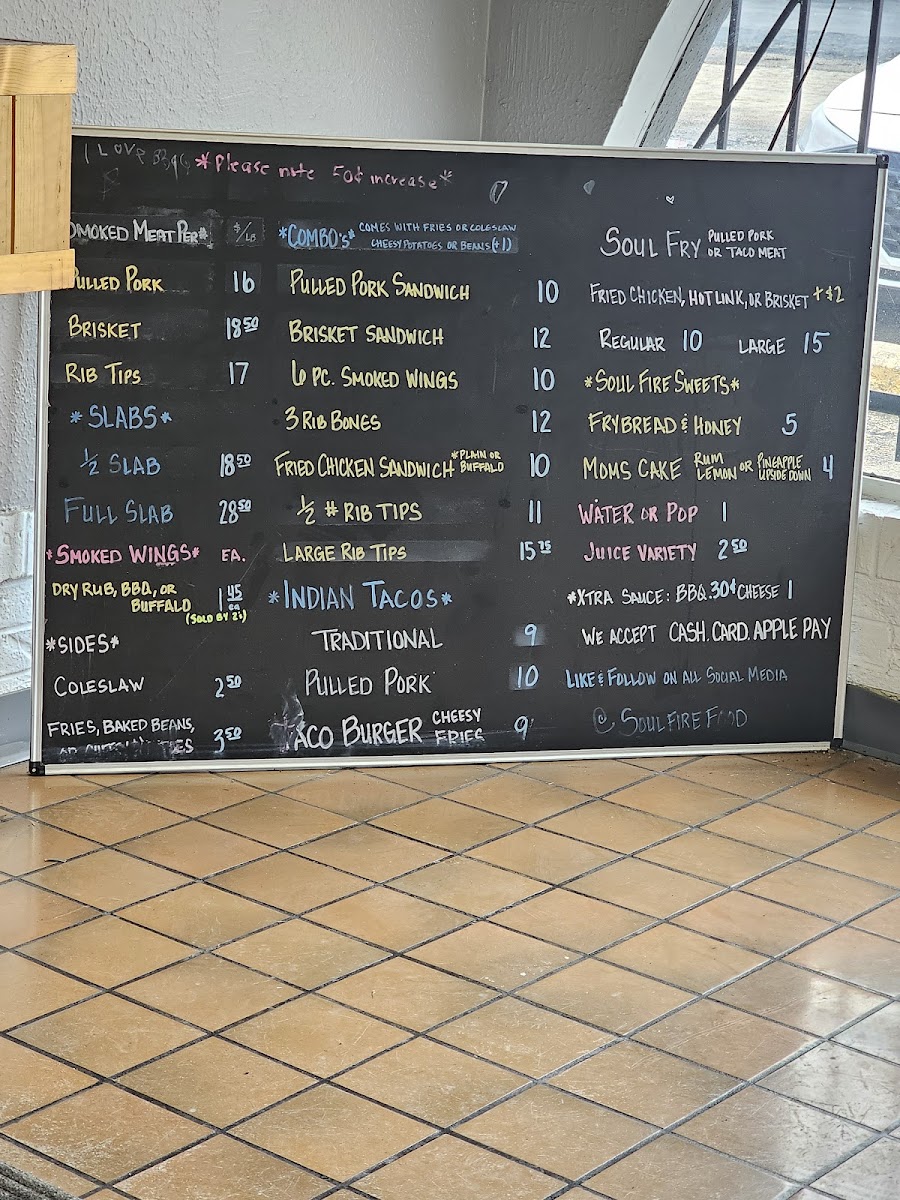 I LOVE BBQ *Please note 50¢ increase*
SMOKED MEAT PER# $/LB
PULLED PORK 16
BRISKET 18⁵⁰
RIB TIPS 17
*SLABS*
½ SLAB 18⁵⁰
FULL SLAB 28⁵⁰
*SMOKED WINGS* EA.
DRY RUB, BBQ, OR
BUFFALO 1⁴⁵ ea
(SOLD BY 2's)
*SIDES*
COLESLAW 2⁵⁰
FRIES, BAKED BEANS,
3⁵⁰
*COMBO's* COMES WITH FRIES OR COLESLAW
CHEESY POTATOES OR BEANS (+1)
PULLED PORK SANDWICH 10
BRISKET SANDWICH 12
6 PC. SMOKED WINGS 10
3 RIB BONES 12
FRIED CHICKEN SANDWICH *PLAIN OR BUFFALO 10
½ # RIB TIPS 11
LARGE RIB TIPS 15⁷⁵
*INDIAN TACOS*
TRADITIONAL 9
PULLED PORK 10
TACO BURGER CHEESY FRIES 9
SOUL FRY PULLED PORK OR TACO MEAT
FRIED CHICKEN, HOT LINK, OR BRISKET +$2
REGULAR 10 LARGE 15
*SOUL FIRE SWEETS*
FRYBREAD & HONEY 5
MOMS CAKE RUM LEMON OR PINEAPPLE UPSIDE DOWN 4
WATER OR POP 1
JUICE VARIETY 2⁵⁰
*XTRA SAUCE: BBQ .30¢ CHEESE 1
WE ACCEPT CASH. CARD. APPLE PAY
LIKE & FOLLOW ON ALL SOCIAL MEDIA
@ SOULFIRE FOOD